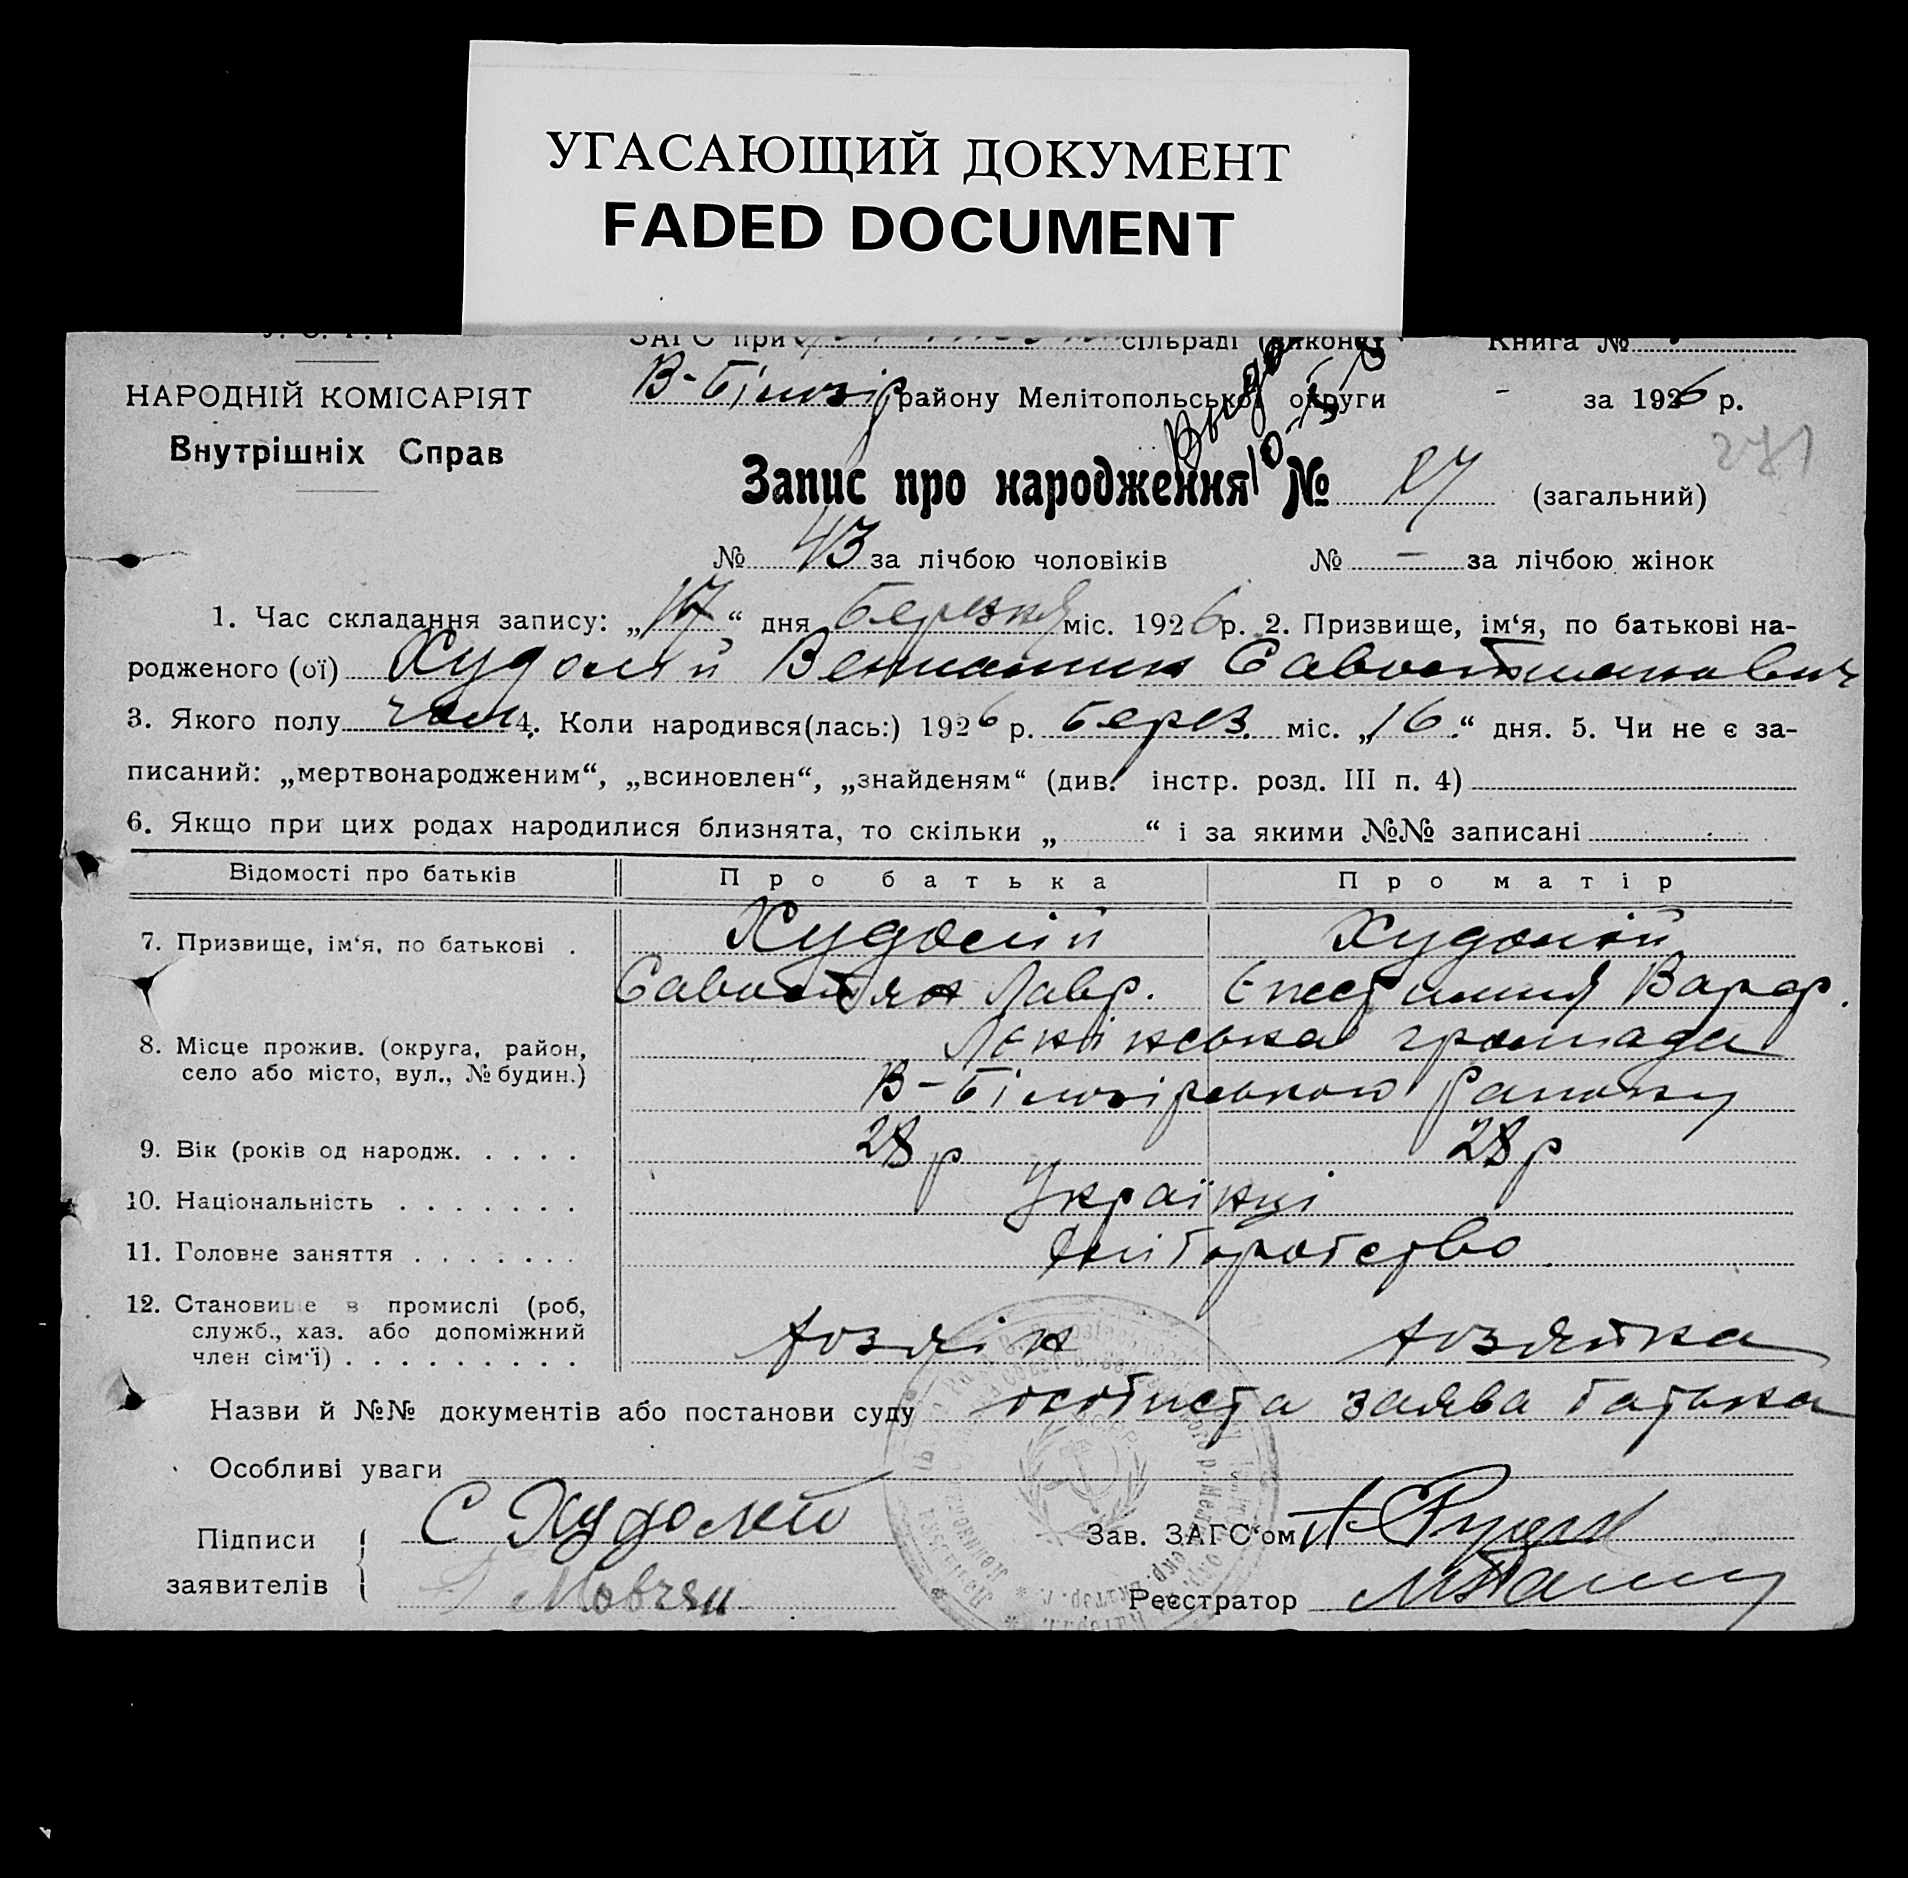 УГАСАЮЩИЙ ДОКУМЕНТ
FADED DOCUMENT
ЗАГС при сільраді Книга №
НАРОДНІЙ КОМІСАРІЯТ
Внутрішніх Справ
В-Білозір району Мелітопольської округи - за 1926 р.
271
Запис про народження № 87 (загальний)
№ 43 за лічбою чоловіків № — за лічбою жінок
1. Час складання запису: „17“ дня Березня міс. 1926 р. 2. Призвище, ім‘я, по батькові на-
родженого (ої) Худолій Вениамин Савостианович
3. Якого полу чол 4. Коли народився(лась:) 1926 р. Берез. міс. „16“ дня. 5. Чи не є за-
писаний: „мертвонародженим“, „всиновлен“, „знайденям“ (див. інстр. розд. III п. 4)
6. Якщо при цих родах народилися близнята, то скільки „ “ і за якими №№ записані
Відомості про батьків Про батька Про матір
7. Призвище, ім‘я, по батькові . Худолій Худолій
Савостян Лавр. Варф.
8. Місце прожив. (округа, район, Ленінська громада
село або місто, вул., № будин.) В-Білозірського Району
9. Вік (років од народж. . . . . 28 р 28 р
10. Національність . . . . . . . Українці
11. Головне заняття . . . . . . . Хліборобство
12. Становище в промислі (роб,
служб., хаз. або допоміжний
член сім‘ї) . . . . . . . . . . хозяін хозяйка
Назви й №№ документів або постанови суду особиста заява батька
Особливі уваги
Підписи С Худолий Зав. ЗАГС‘ом
заявителів Мовчан Реєстратор